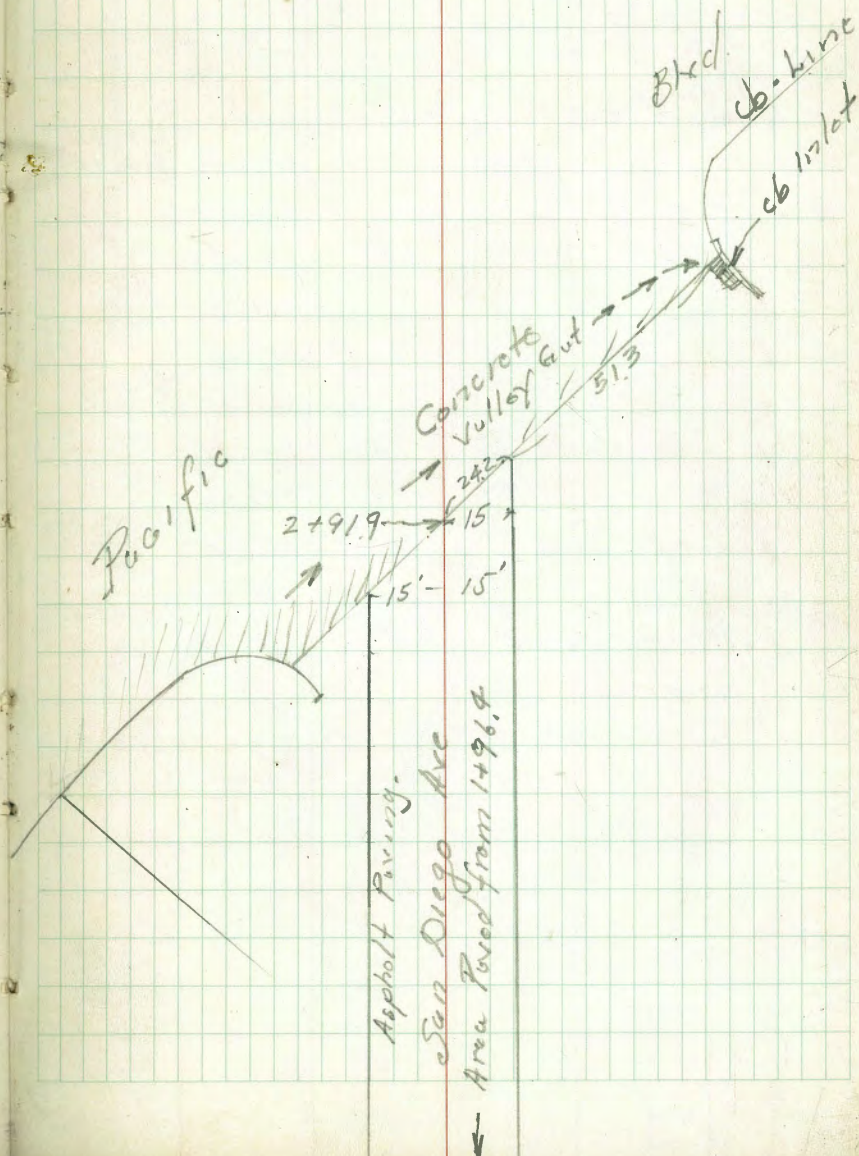 Blvd.
cb-Line
cb Inlet
Concrete
Valley Gut
51.3
Pacific
24.2
2+91.9
15
15' - 15'
Asphalt Paving.
San Diego Ave
Area Paved from 1+96.4